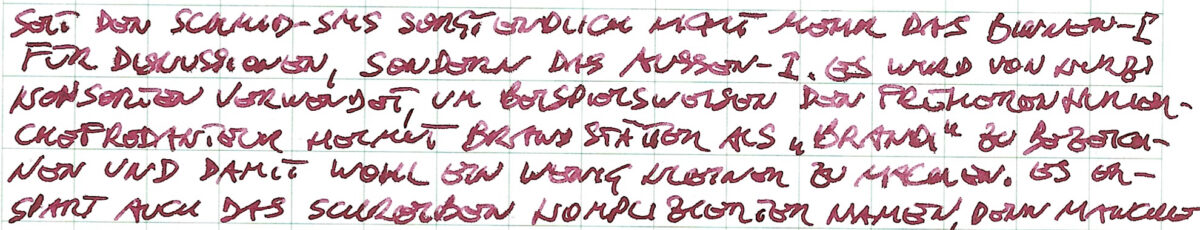 SEIT DEN SCHMID-SMS SORGT ENDLICH NICHT MEHR DAS BINNEN-I
FÜR DISKUSSIONEN, SONDERN DAS AUSSEN-I. ES WIRD VON KURZI
KONSORTEN VERWENDET, UM BEISPIELSWEISEN DEN FRÜHEREN KURIER-
CHEFREDAKTEUR HELMUT BRANDSTÄTTER ALS „BRANDI“ ZU BEZEICH-
NEN UND DAMIT WOHL EIN WENIG KLEINER ZU MACHEN. ES ER-
SPART AUCH DAS SCHREIBEN KOMPLIZIERTER NAMEN, DENN MANCHE